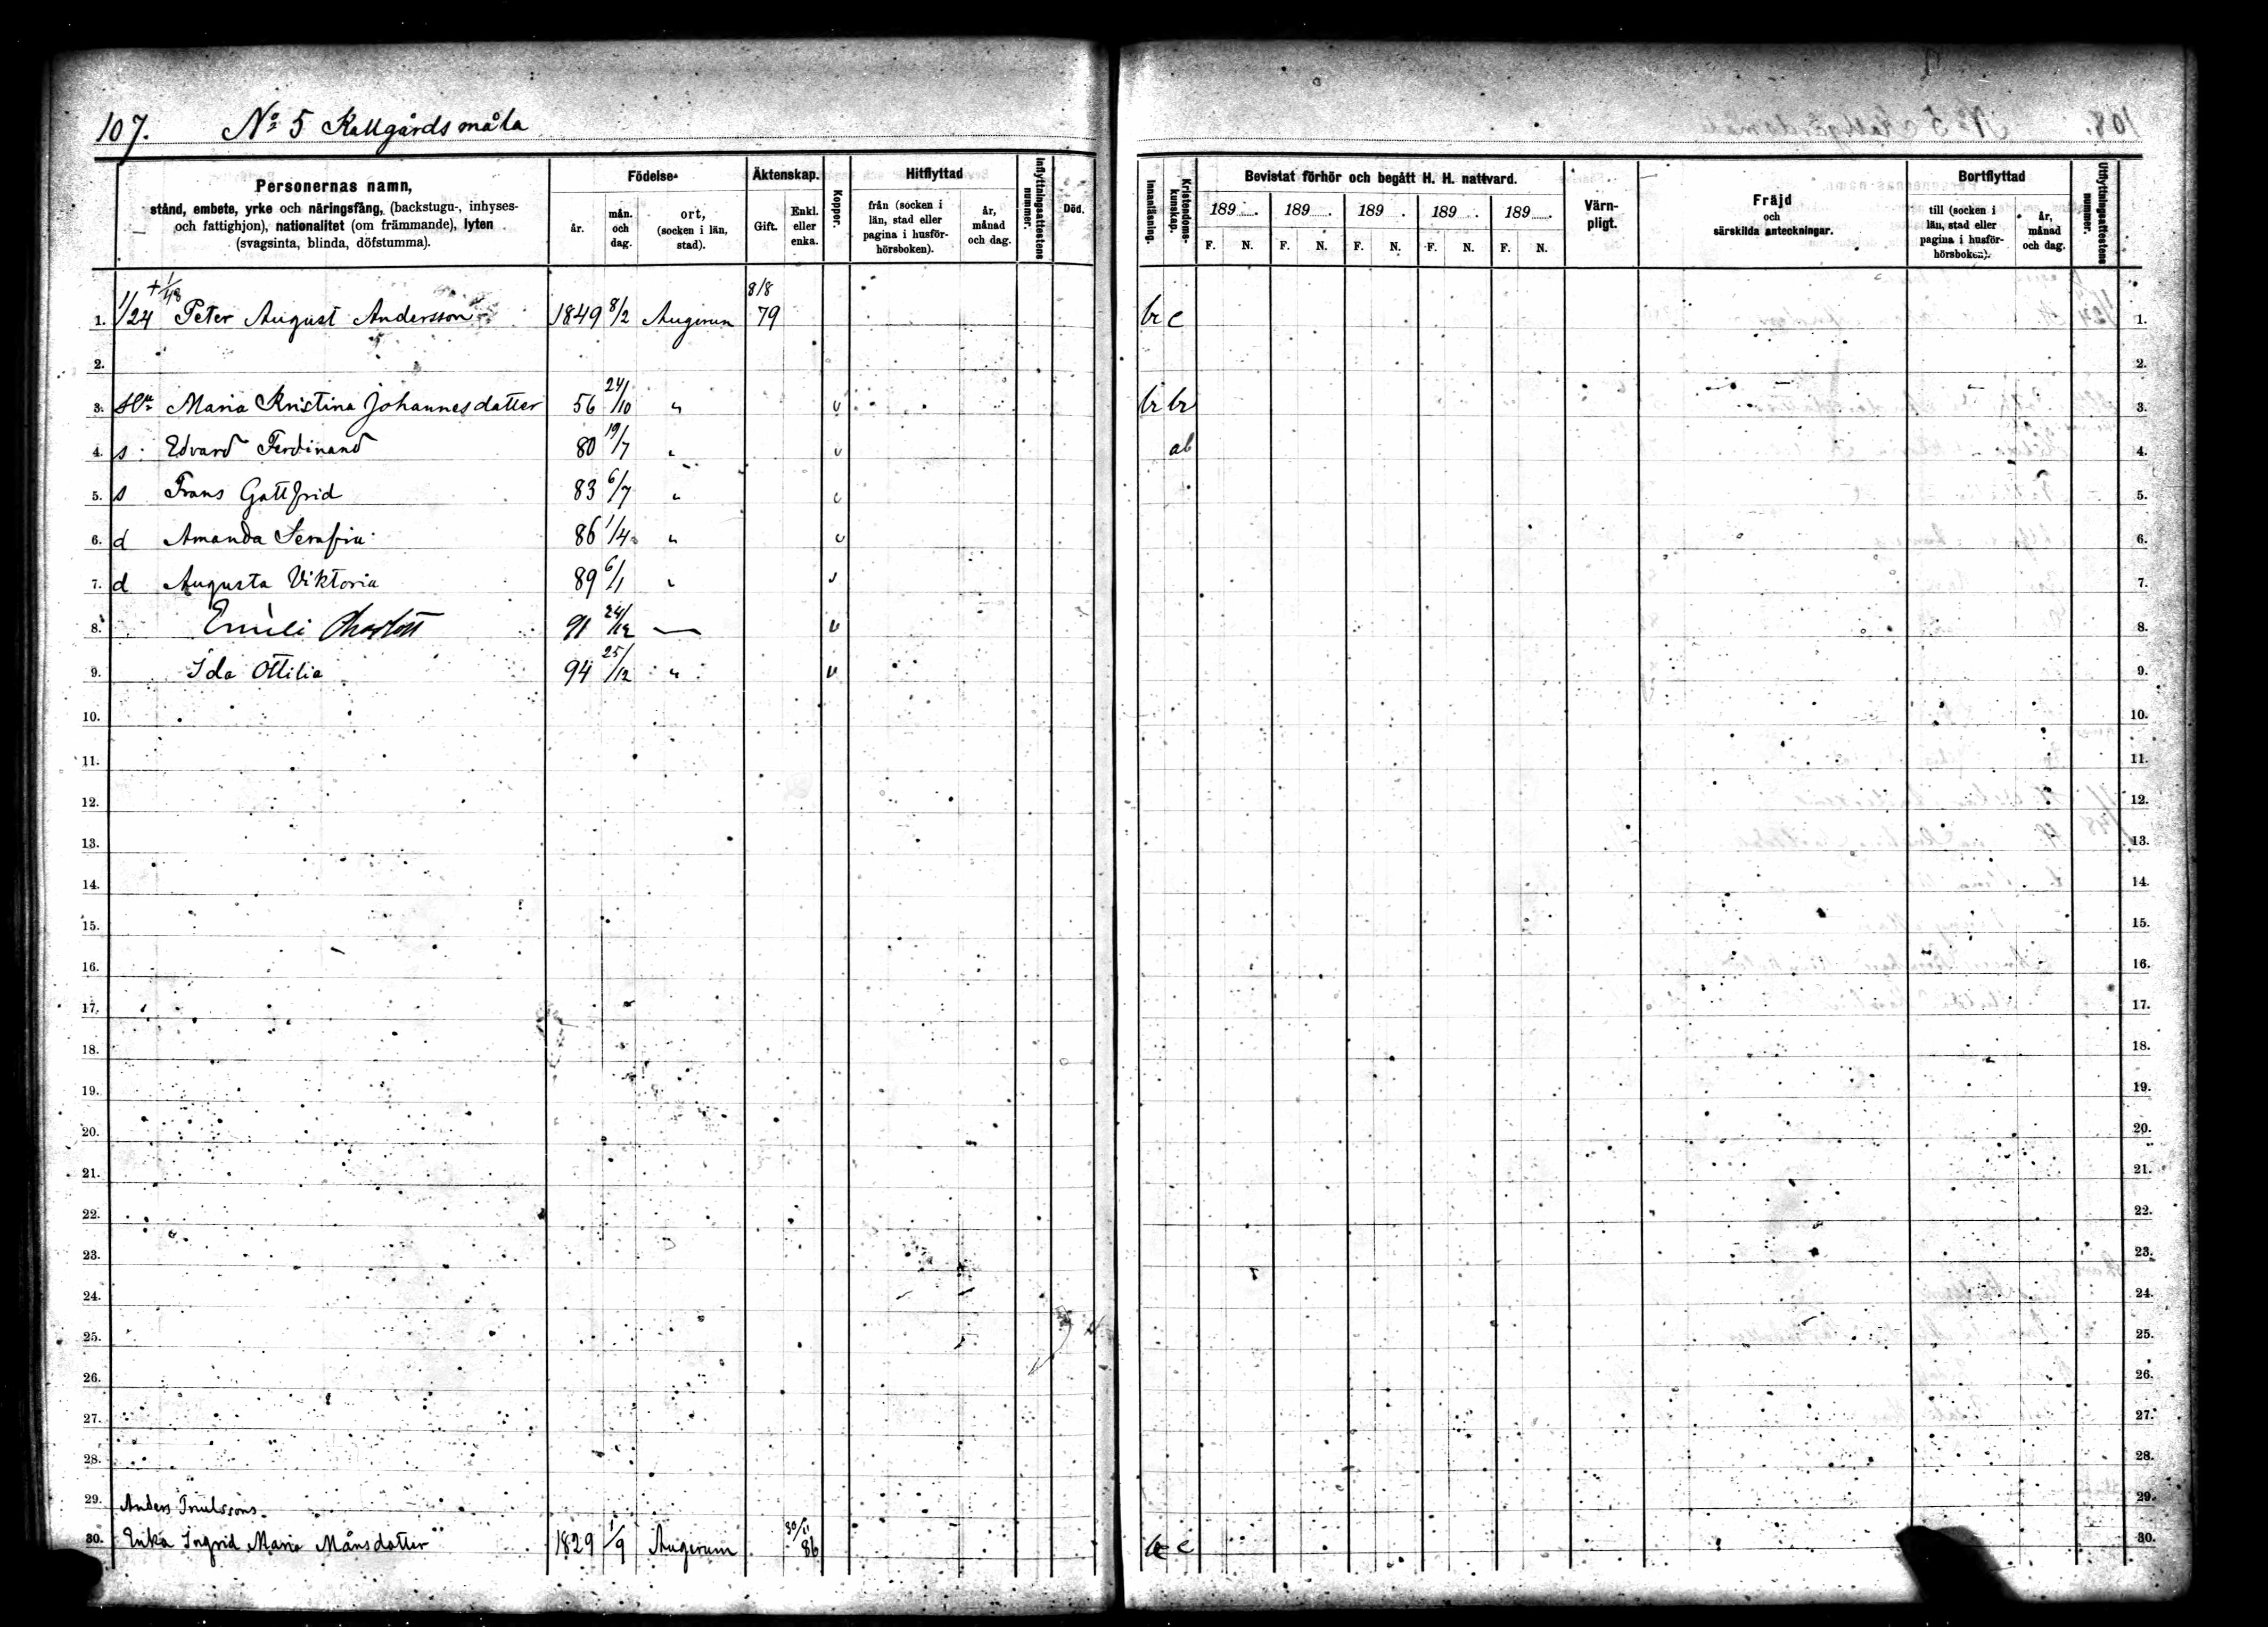 107. No 5 Kallgårdsmåla
Personernas namn,
stånd, embete, yrke och näringsfång, (backstugu-, inhyses-
och fattighjon), nationalitet (om främmande), lyten
(svagsinta, blinda, döfstumma).
Födelse-
år.
mån. och dag.
ort, (socken i län, stad).
Äktenskap.
Gift.
Enkl. eller enka.
Koppor.
Hitflyttad
från (socken i län, stad eller pagina i husförhörsboken).
år, månad och dag.
Inflyttningsattestens nummer.
Död.
Innanläsning.
Kristendomskunskap.
Bevistat förhör och begått H. H. nattvard.
189 189 189 189 189
F. N. F. N. F. N. F. N. F. N.
Värnpligt.
Fräjd
och
särskilda anteckningar.
Bortflyttad
till (socken i län, stad eller pagina i husförhörsboken).
år, månad och dag.
Utflyttningsattestens nummer.
+ 1/48 8/8
1. 1/24 Peter August Andersson 1849 8/2 Augerum 79 br c 1.
2. 2.
3. Maria Kristina Johannesdatter 56 24/10 " v br br 3.
4. s Edvard Ferdinand 80 19/7 " v ab 4.
5. s Frans Gottfrid 83 6/7 " v 5.
6. d Amanda Serafia 86 1/4 " v 6.
7. d Augusta Viktoria 89 6/1 " v 7.
8. Emili Charlott 91 24/12 — v 8.
9. Ida Ottilia 94 25/12 " v 9.
10. 10.
11. 11.
12. 12.
13. 13.
14. 14.
15. 15.
16. 16.
17. 17.
18. 18.
19. 19.
20. 20.
21. 21.
22. 22.
23. 23.
24. 24.
25. 25.
26. 26.
27. 27.
28. 28.
29. Anders 29.
30. Enka Ingrid Maria Månsdotter 1829 1/9 Augerum 30/11 86 c 30.